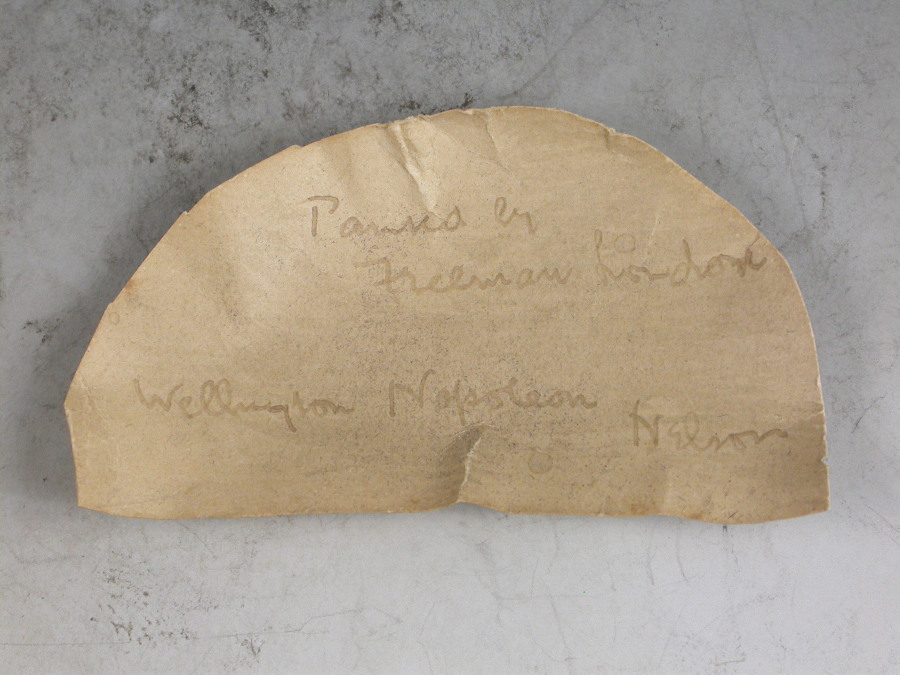 by
Freeman London
Wellington Napoleon Nelson